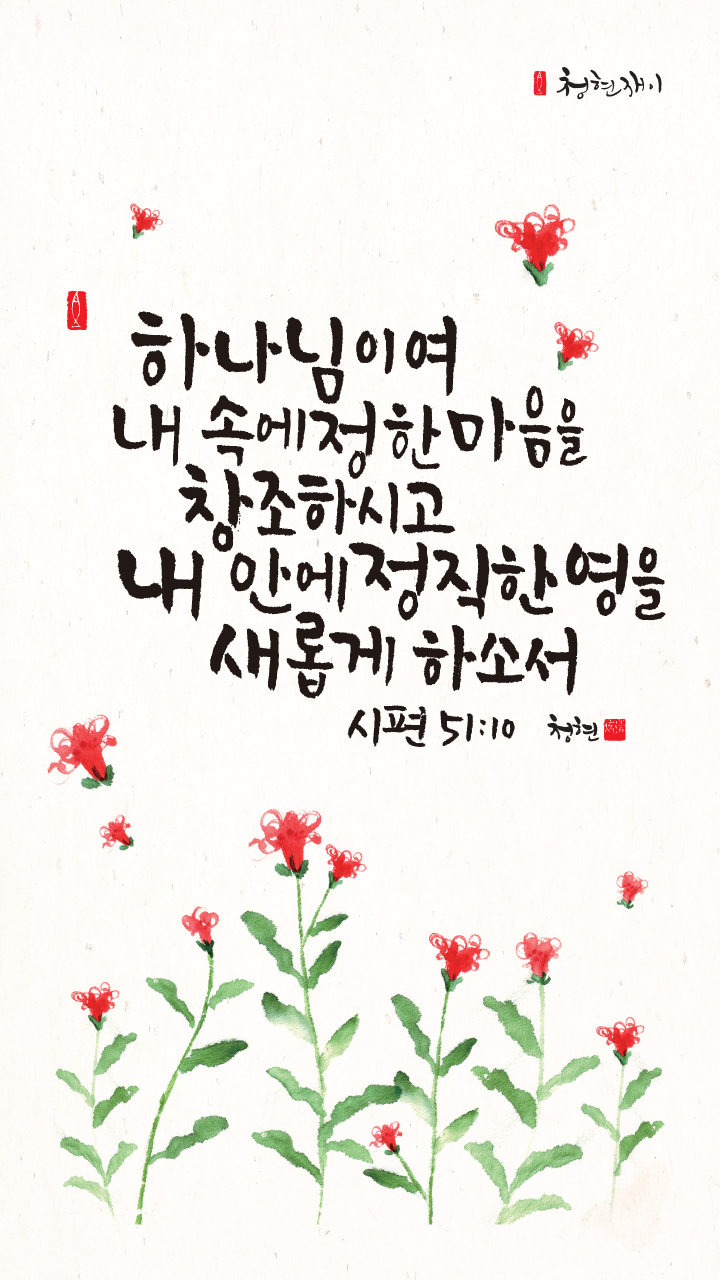 청현재이
하나님이여
내 속에 정한 마음을
창조하시고
내 안에 정직한 영을
새롭게 하소서
시편 51:10 청현